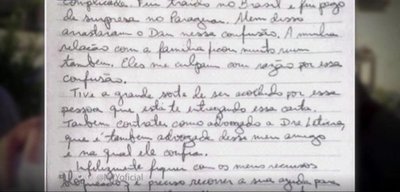 complicada. Fui traído no Brasil e fui pego
de surpresa no Paraguai. Além disso
arrastaram o Dan nessa confusão. A minha
relação com a família ficou muito ruim
também. Eles me culpam com razão por essa
confusão.
Tive a grande sorte de ser acolhido por essa
pessoa que está te entregando essa carta.
Também contratei como advogado a Dra Letícia,
que é também advogada desse meu amigo
e na qual ele confia.
Infelizmente fiquei com os meus recursos
bloqueados e preciso recorrer a sua ajuda para
oficial